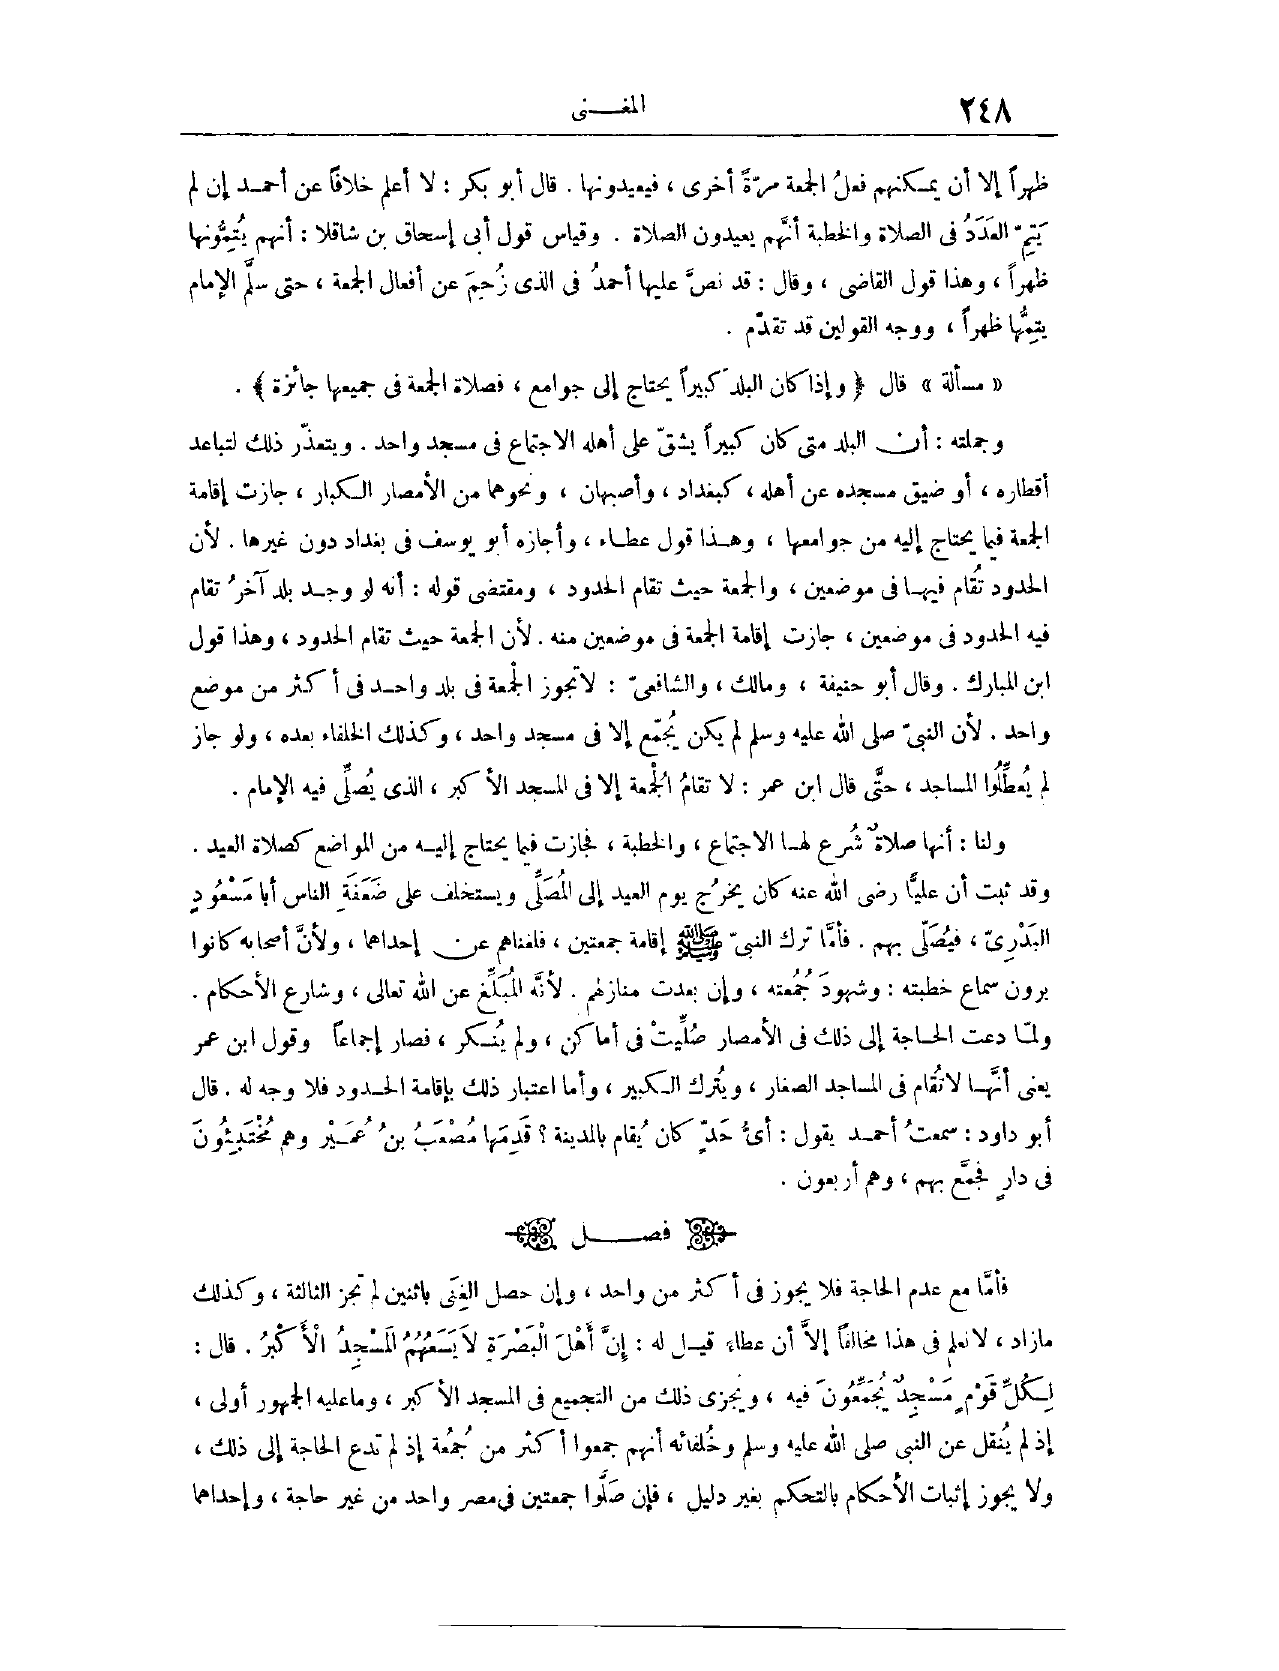 ٢٤٨
المغـــنى
ظهراً إلا أن يمكنهم فعلُ الجمعة مرّةً أخرى ، فيعيدونها . قال أبو بكر : لا أعلم خلافاً عن أحمد إن لم
يَتِمّ العَدَدُ فى الصلاة والخطبة أنَّهم يعيدون الصلاة . وقياس قول أبى إسحاق بن شاقلا : أنهم يُتِمُّونها
ظهراً ، وهذا قول القاضى ، وقال : قد نصَّ عليها أحمدُ فى الذى زُحِمَ عن أفعال الجمعة ، حتى سلَّم الإمام
يتِمُّها ظهراً ، ووجه القولين قد تقدّم .
« مسألة » قال ﴿ وإذا كان البلد كبيراً يحتاج إلى جوامع ، فصلاة الجمعة فى جميعها جائزة ﴾ .
وجملته : أن البلد متى كان كبيراً يشقّ على أهله الاجتماع فى مسجد واحد . ويتعذّر ذلك لتباعد
أقطاره ، أو ضيق مسجده عن أهله ، كبغداد ، وأصبهان ، ونحوهما من الأمصار الكبار ، جازت إقامة
الجمعة فيما يحتاج إليه من جوامعها ، وهذا قول عطاء ، وأجازه أبو يوسف فى بغداد دون غيرها . لأن
الحدود تُقام فيها فى موضعين ، والجمعة حيث تقام الحدود ، ومقتضى قوله : أنه لو وجد بلد آخرُ تقام
فيه الحدود فى موضعين ، جازت إقامة الجمعة فى موضعين منه . لأن الجمعة حيث تقام الحدود ، وهذا قول
ابن المبارك . وقال أبو حنيفة ، ومالك ، والشافعىّ : لا تجوز الجمعة فى بلد واحد فى أكثر من موضع
واحد . لأن النبىّ صلى الله عليه وسلم لم يكن يُجمّع إلا فى مسجد واحد ، وكذلك الخلفاء بعده ، ولو جاز
لم يُعطِّلُوا المساجد ، حتَّى قال ابن عمر : لا تقامُ الجُمعة إلا فى المسجد الأكبر ، الذى يُصلِّى فيه الإمام .
ولنا : أنها صلاةٌ شُرع لها الاجتماع ، والخطبة ، فجازت فيما يحتاج إليه من المواضع كصلاة العيد .
وقد ثبت أن عليًّا رضى الله عنه كان يخرُج يوم العيد إلى المُصَلَّى ويستخلف على ضَعَفَةِ الناس أبا مَسْعُودٍ
البَدْرِىّ ، فيُصَلِّى بهم . فأمَّا ترك النبىّ ﷺ إقامة جمعتين ، فلغناهم عن إحداهما ، ولأنَّ أصحابه كانوا
يرون سماع خطبته : وشهودَ جُمُعته ، وإن بعدت منازلهم . لأنَّه المُبَلِّغ عن الله تعالى ، وشارع الأحكام .
ولمّا دعت الحاجة إلى ذلك فى الأمصار صُلِّيتْ فى أماكن ، ولم يُنكر ، فصار إجماعاً وقول ابن عمر
يعنى أنَّها لا تُقام فى المساجد الصغار ، ويُترك الكبير ، وأما اعتبار ذلك بإقامة الحدود فلا وجه له . قال
أبو داود : سمعتُ أحمد يقول : أىُّ حَدٍّ كان يُقام بالمدينة ؟ قَدِمَها مُصْعَبُ بنُ عُمَيْر وهم مُخْتَبِئُونَ
فى دارٍ فجمَّع بهم ، وهم أربعون .
فصـــل
فأمَّا مع عدم الحاجة فلا يجوز فى أكثر من واحد ، وإن حصل الغِنَى باثنين لم تجز الثالثة ، وكذلك
مازاد ، لانعلم فى هذا مخالفاً إلاَّ أن عطاء قيل له : إنَّ أَهْلَ الْبَصْرَةِ لاَ يَسَعُهُمُ المَسْجِدُ الْأَكْبَرُ . قال :
لِكُلِّ قَوْمٍ مَسْجِدٌ يُجَمِّعُونَ فيه ، ويجزى ذلك من التجميع فى المسجد الأكبر ، وماعليه الجمهور أولى ،
إذ لم يُنقل عن النبى صلى الله عليه وسلم وخُلفائه أنهم جمعوا أكثر من جُمعُة إذ لم تدع الحاجة إلى ذلك ،
ولا يجوز إثبات الأحكام بالتحكم بغير دليل ، فإن صَلَّوا جمعتين فى مصر واحد من غير حاجة ، وإحداهما